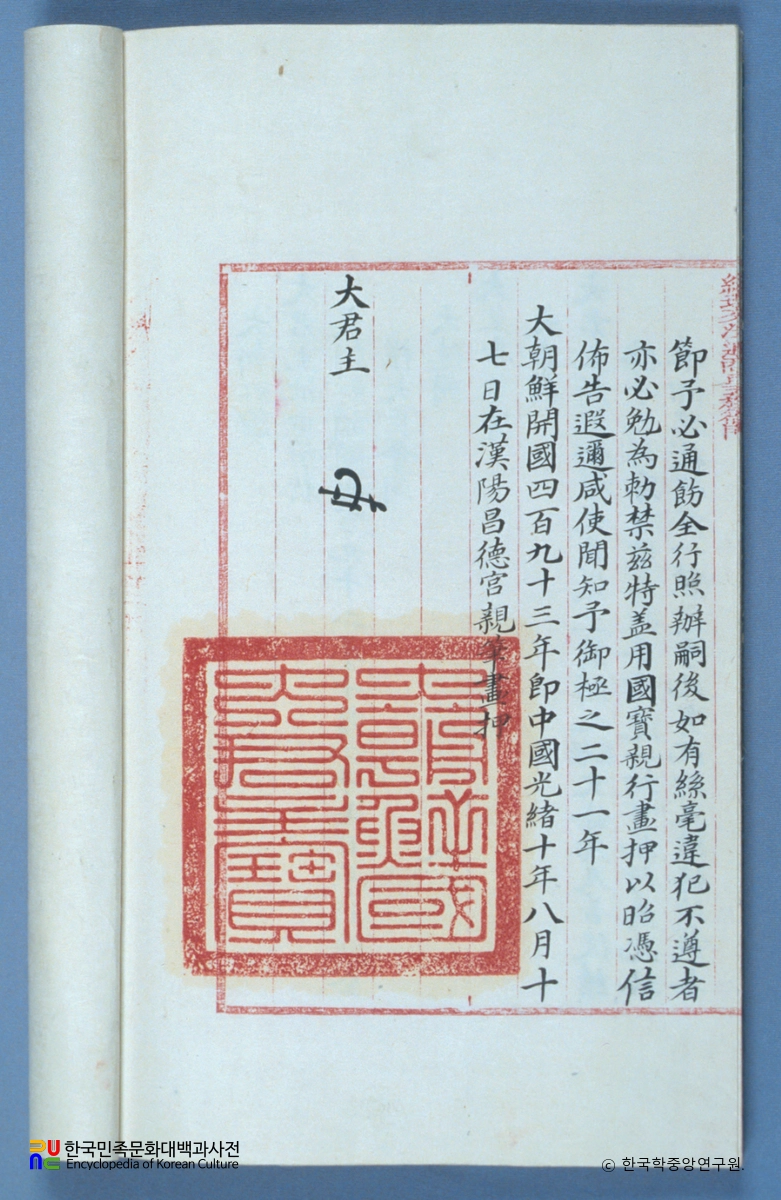 節予必通飭全行照辦嗣後如有絲毫違犯不遵者
亦必勉為勅禁玆特盖用國寶親行畫押以昭憑信
佈告遐邇咸使聞知予御極之二十一年
大朝鮮開國四百九十三年卽中國光緖十年八月十
七日在漢陽昌德宮親筆畫押
大君主
大朝鮮國
大君主寶
한국민족문화대백과사전
Encyclopedia of Korean Culture
© 한국학중앙연구원.